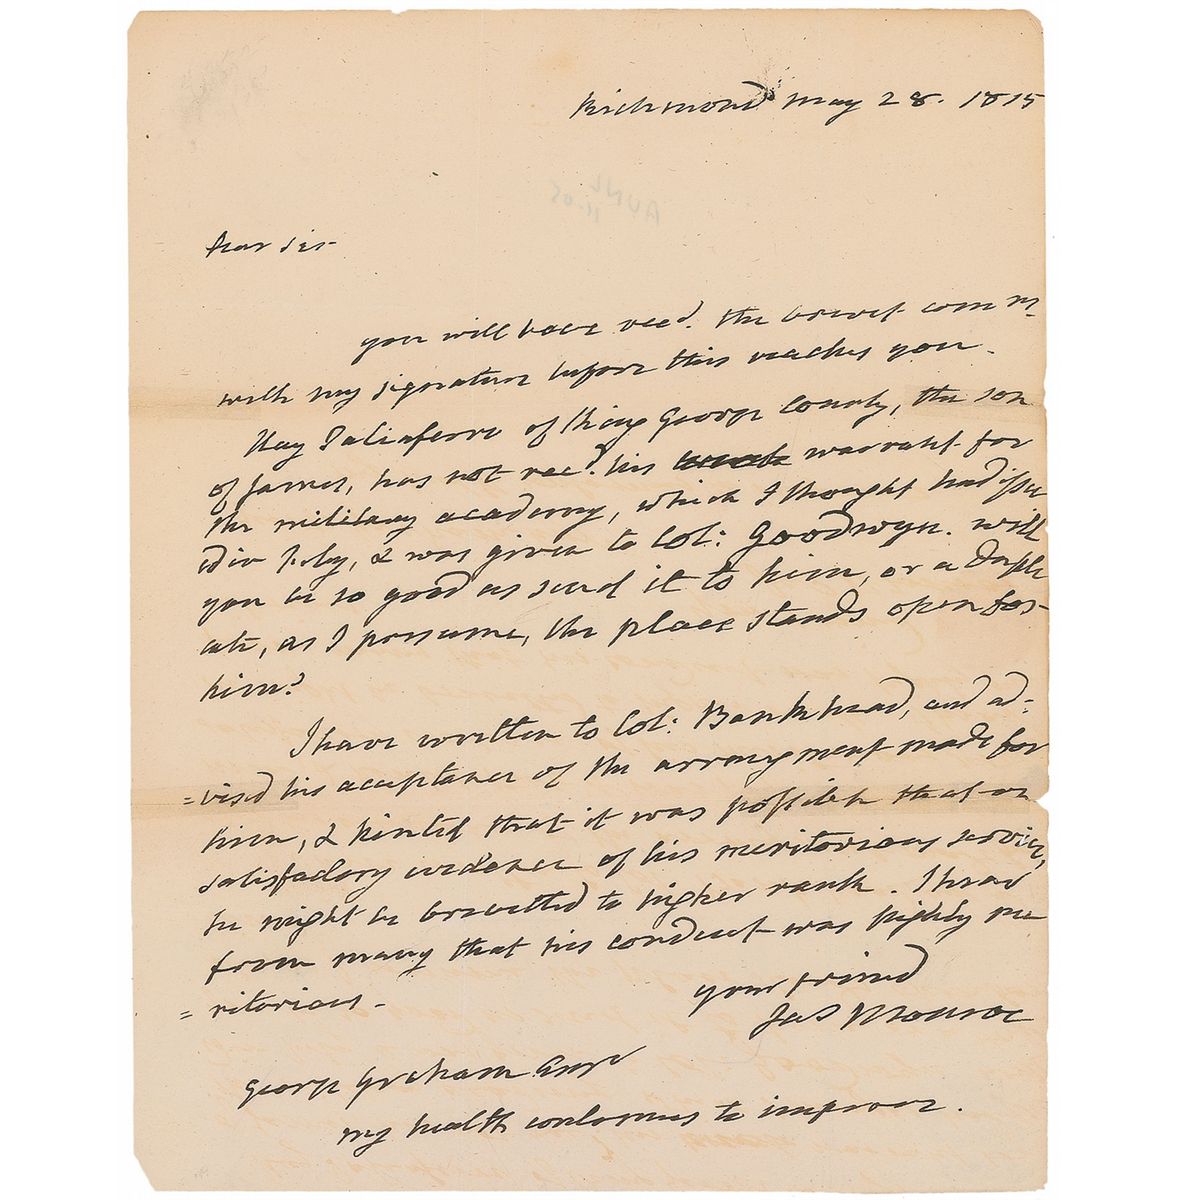 Richmond May 28. 1815
Dear Sir
you will have recd. the brevet comms.
with my signature before this reaches you.
Hay Taliaferro of King George County, the son
of James, has not recd. his warrant for
the military academy, which I thought had issu
ed in Feby, & was given to Col: Goodwyn. will
you be so good as send it to him, or a dupli
cate, as I presume, the place stands open for
him?
I have written to Col: Bankhead, and ad:
=vised his acceptance of the arrangment made for
him, & hinted that it was possible that on
satisfactory evidence of his meritorious service,
he might be brevetted to higher rank. I hear
from many that his conduct was highly me
=ritorious.
your friend
Jas Monroe
George Graham Esqr
my health continues to improve.